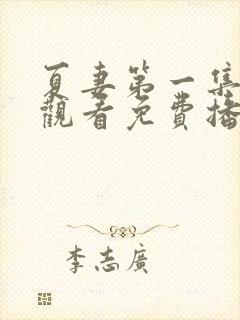 夏妻第一集
觀看免費播
李志廣